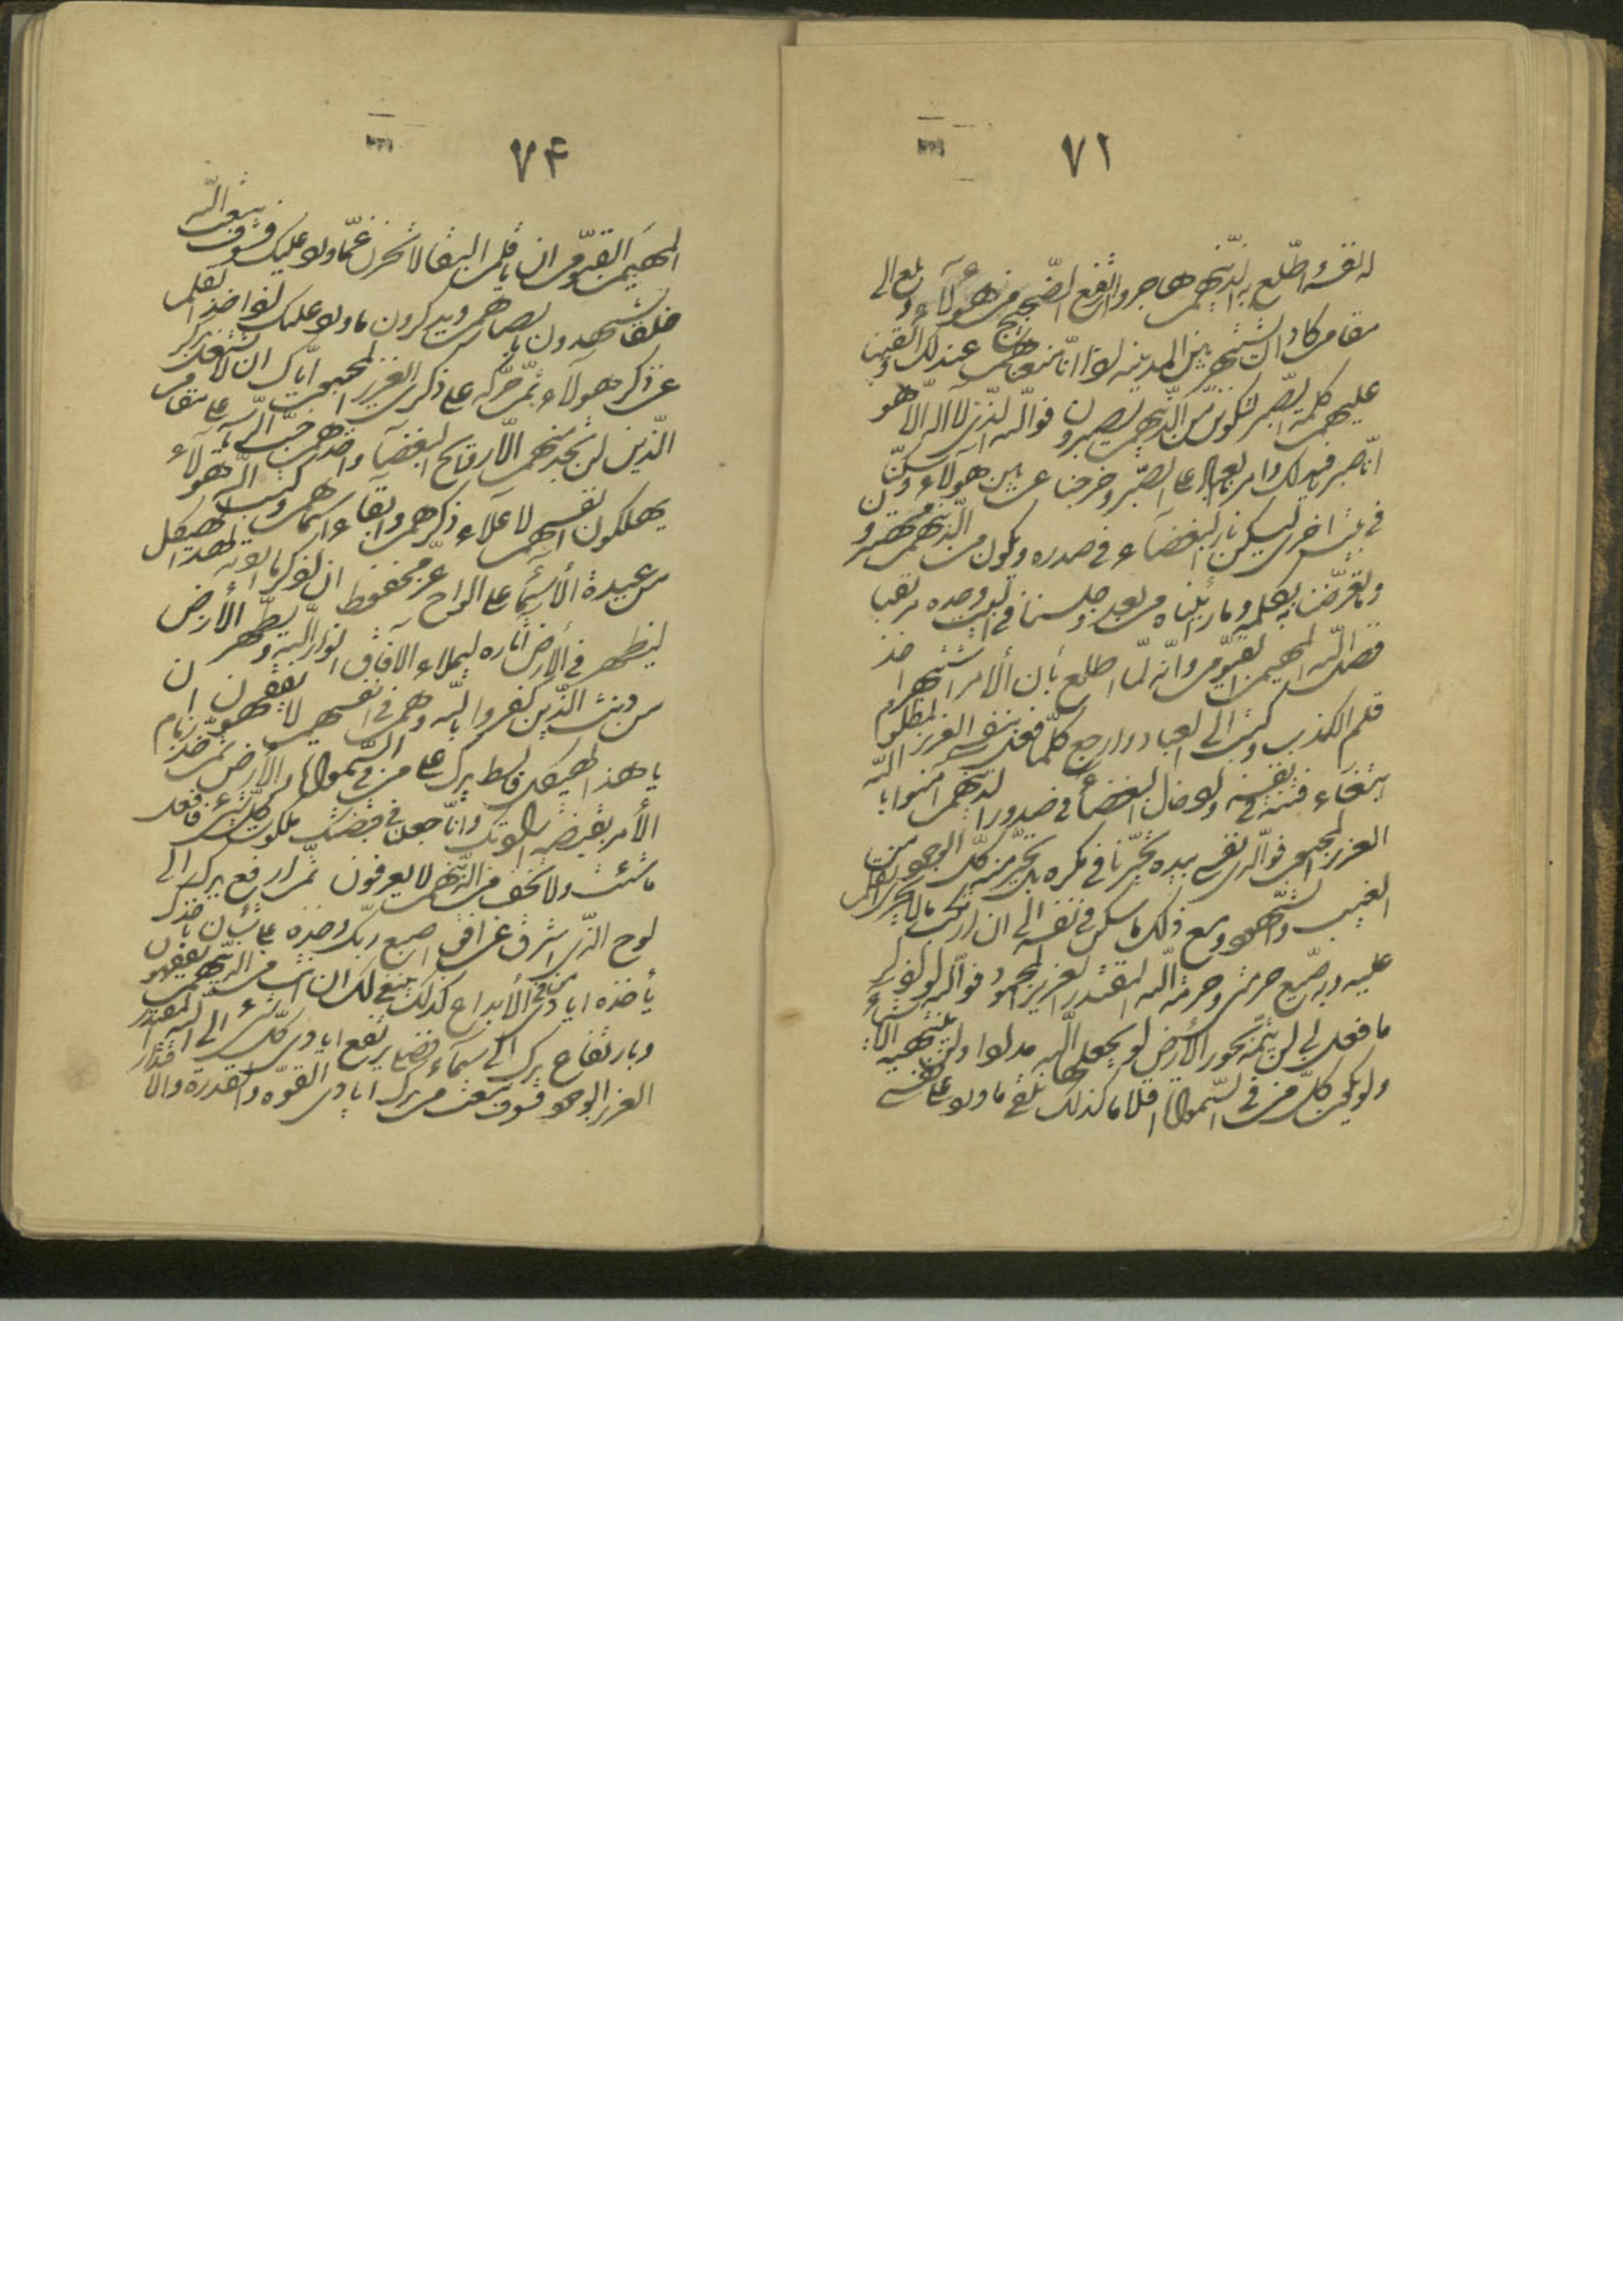 ٧٢
له نفسه واطّلع به الّذينهم هاجروا وارتفع الضّجيج من هؤلآء وبلغ الى
مقام كاد ان يشتهر بين المدينة اذا انّا منعناهم عن ذلك والقينا
عليهم كلمة الصّبر لتكوننّ من الّذينهم يصبرون فوالله الّذى لا اله الّا هو
انّا صبرنا فى ذلك وامرنا العباد على الصّبر وخرجنا عن بين هؤلآء وسكنّا
فى بيت اخرى ليسكن نار البغضآء فى صدره ويكون من الّذينهم مهتدون
وما تعرّضنا به بعمله وما رئيناه من بعد وجلسنا فى البيت وحده مرتقبا
فضل الله المهيمن القيّوم وانّه لمّا اطّلع بأن الأمر اشتهر اخذ
قلم الكذب وكتب الى العباد وارجع كلّما فعل بنفسى العزيز المظلوم
ابتغآء فتنة فى نفسه وادخال البغضآء فى صدور الّذينهم امنوا بالله
العزيز المحبوب فوالّذى نفسى بيده تحيّرنا فى مكره بل تحيّر منه كلّ الوجود من
الغيب والشّهود ومع ذلك ما سكن فى نفسه الى ان ارتكب ما لا يجرى القلم
عليه وبه ضيّع حرمتى وحرمة الله المقتدر العزيز المحمود فوالله لو اذكر
ما فعل بى لن يتمّه بحور الأرض لو يجعلها الله مدادا ولن ينتهيه الأشيآء
ولو يكن كلّ من فى السّموات اقلاما كذلك نلقى ما ورد على نفسى
٧٤
المهيمن القيّوم ان يا قلم البقا لا تحزن عمّا ورد عليك فسوف يبعث الله
خلقا يشهدون بابصارهم ويذكرون ما ورد عليك اذا خذ القلم
عن ذكر هؤلآء ثمّ حرّكه على ذكرى العزيز المحبوب ايّاك ان لا تشتغل بذكر
الّذين لن تجد منهم الّا روائح البغضآء واخذهم حبّ الرّياسة على مقام
يهلكون انفسهم لأعلآء ذكرهم وابقآء اسمائهم وكتب الله هؤلآء
من عبدة الأسمآء على الواح عزّ محفوظ ان اذكر ما اردته لهذا الهيكل
ليظهر فى الأرض اثاره ليملأء الآفاق انوار الله ويطهّر الأرض
من دنس الّذين كفروا بالله وهم فى انفسهم لا يفقهون ان
يا هذا الهيكل فابسط يدك على من فى السّموات والأرض ثمّ خذ زمام
الأمر بقبضة ارادتك وانّا جعلنا فى قبضتك ملكوت كلّ شىء فافعل
ما شئت ولا تخف من الّذينهم لا يعرفون ثمّ ارفع يدك الى
لوح الّذى اشرق عن افق اصبع ربّك وخذه على شأن بأخذك
يأخذه ايادى من فى الأبداع كذلك ينبغى لك ان انت من الّذينهم يفقهون
وبارتفاع يدك الى سمآء فضلى يرتفع ايادى كلّ شىء الى الله المقتدر
العزيز الودود فسوف نبعث من يدك ايادى القوّة والقدرة والاقتدار